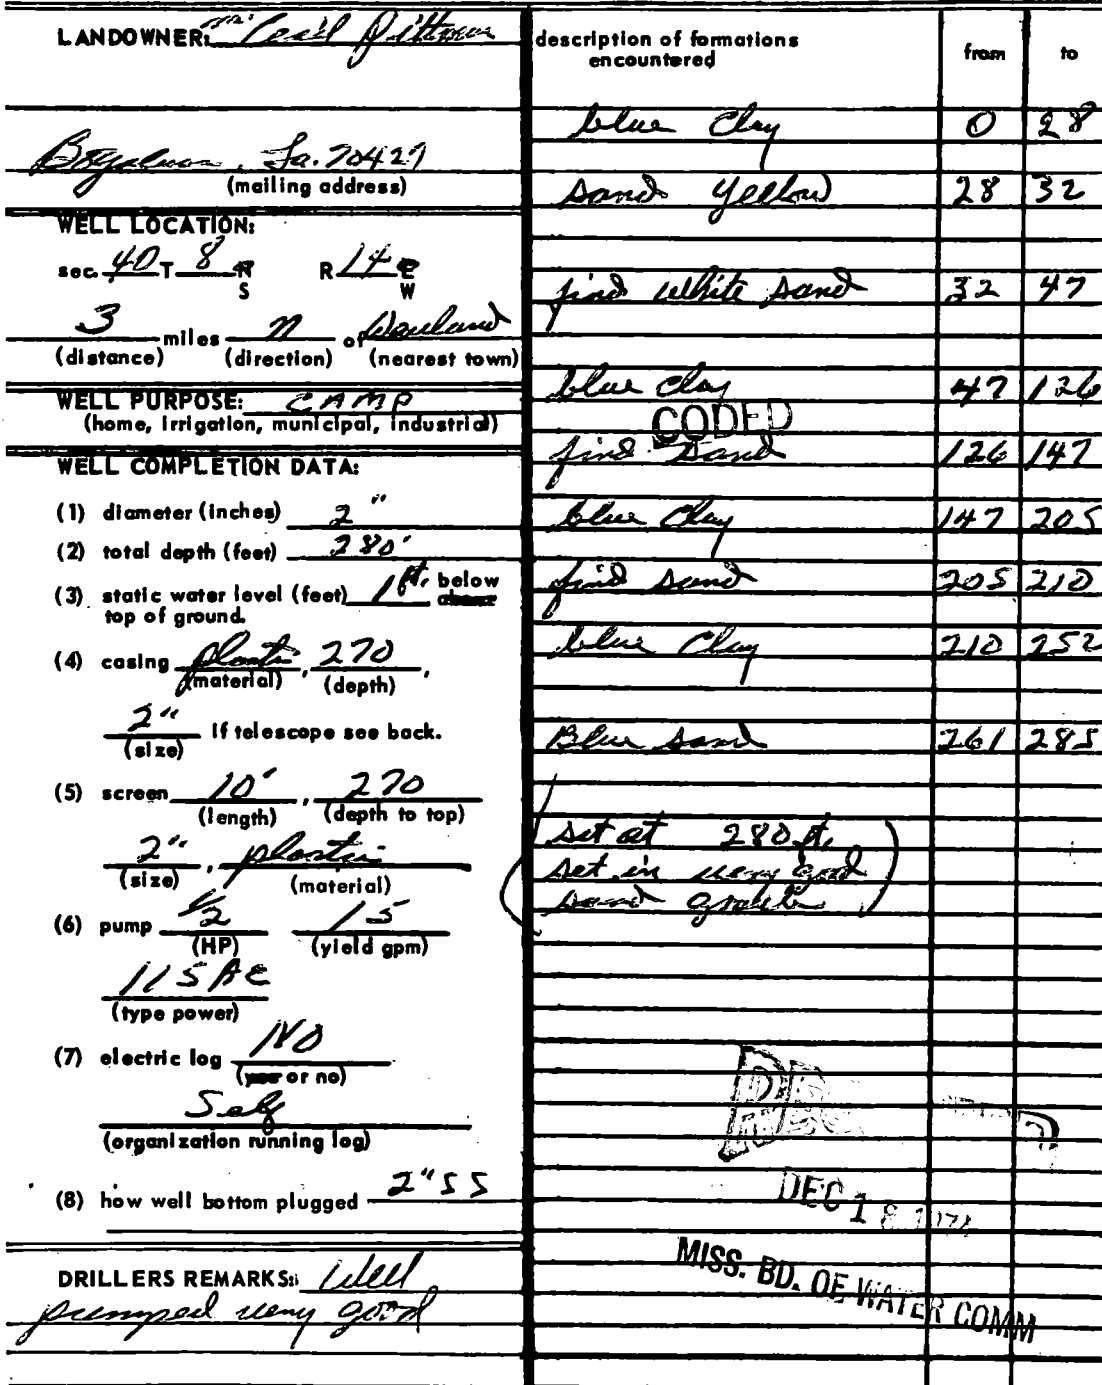 LANDOWNER: mr. Cecil Pittman
Bogalusa, La. 70427
(mailing address)
WELL LOCATION:
sec. 40 T 8 N S R 14 E W
3 miles N of Waveland
(distance) (direction) (nearest town)
WELL PURPOSE: CAMP
(home, irrigation, municipal, industrial)
WELL COMPLETION DATA:
(1) diameter (inches) 2"
(2) total depth (feet) 280'
(3) static water level (feet) 1 ft. below above
top of ground.
(4) casing plastic, 270,
(material) (depth)
2" If telescope see back.
(size)
(5) screen 10', 270
(length) (depth to top)
2", plastic
(size) (material)
(6) pump 1/2 15
(HP) (yield gpm)
115 AC
(type power)
(7) electric log NO
(yes or no)
Self
(organization running log)
(8) how well bottom plugged 2" SS
DRILLERS REMARKS: Well
pumped very good
description of formations from to
encountered
blue Clay 0 28
sand yellow 28 32
find white sand 32 47
blue clay 47 126
CODED
find sand 126 147
blue Clay 147 205
find sand 205 210
blue Clay 210 252
Blue sand 261 285
(set at 280 ft.
set in very good
sand )
DEC 18
MISS. BD. OF WATER COMM